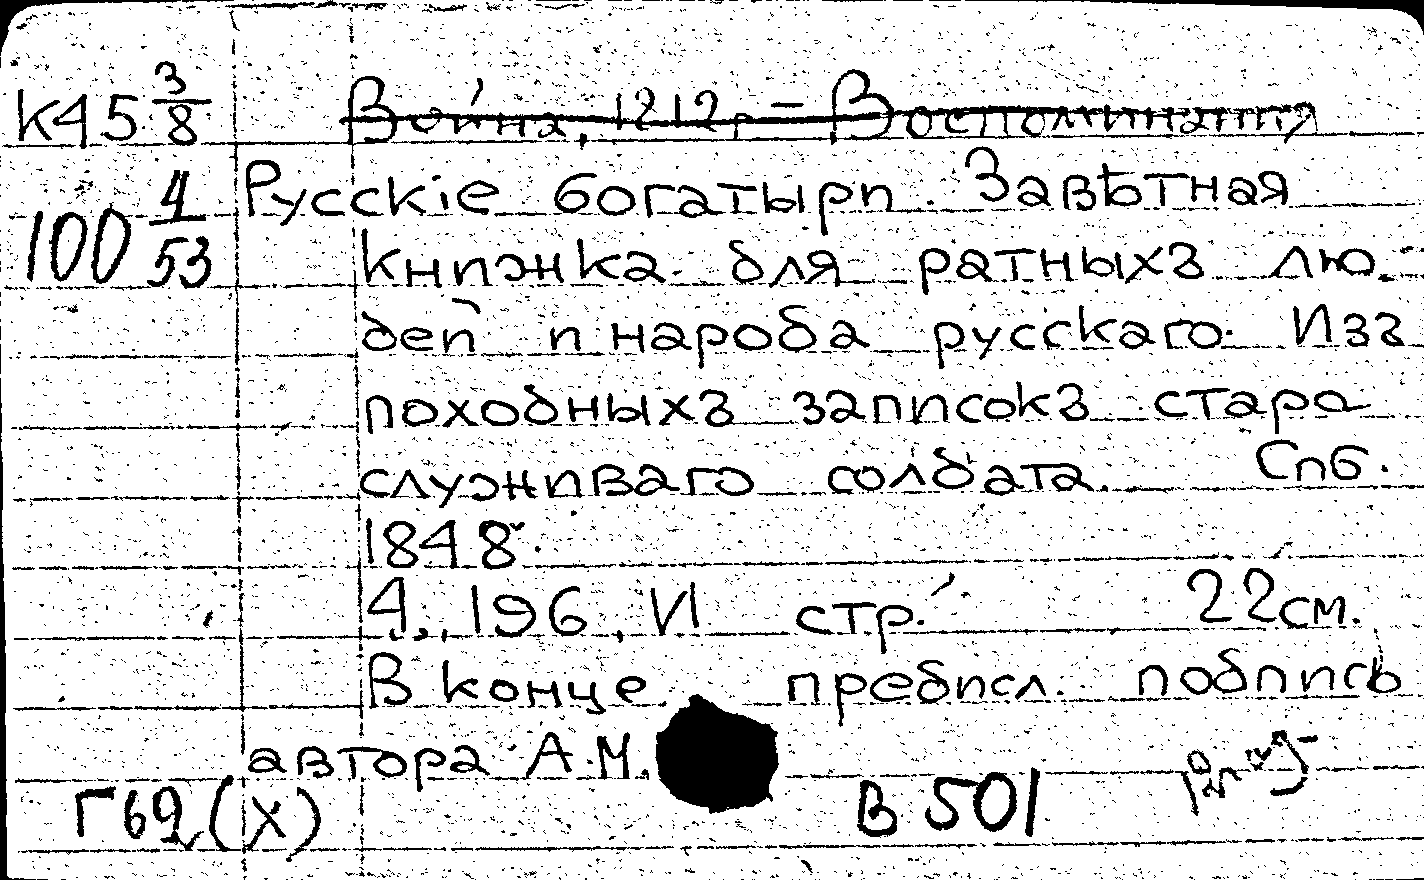 К45 3/8 Война, 1812 г. – Воспоминания
100 4/53 Русскіе богатыри. Завѣтная
книжка для ратныхъ лю-
дей и народа русскаго. Изъ
походныхъ записокъ стара
служиваго солдата. Спб.
1848.
4, 196, VI стр. 22 см.
В конце предисл. подпись
автора А.М.
Г62(х) В 501